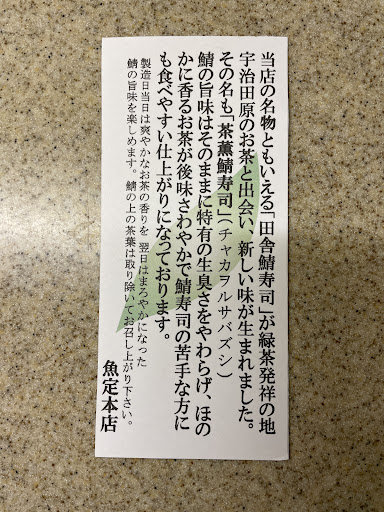 当店の名物ともいえる「田舎鯖寿司」が緑茶発祥の地
宇治田原のお茶と出会い、新しい味が生まれました。
その名も「茶薫鯖寿司」(チャカヲルサバズシ)
鯖の旨味はそのままに特有の生臭さをやわらげ、ほの
かに香るお茶が後味さわやかで鯖寿司の苦手な方に
も食べやすい仕上がりになっております。
製造日当日は爽やかなお茶の香りを 翌日はまろやかになった
鯖の旨味を楽しめます。鯖の上の茶葉は取り除いてお召し上がり下さい。
魚定本店